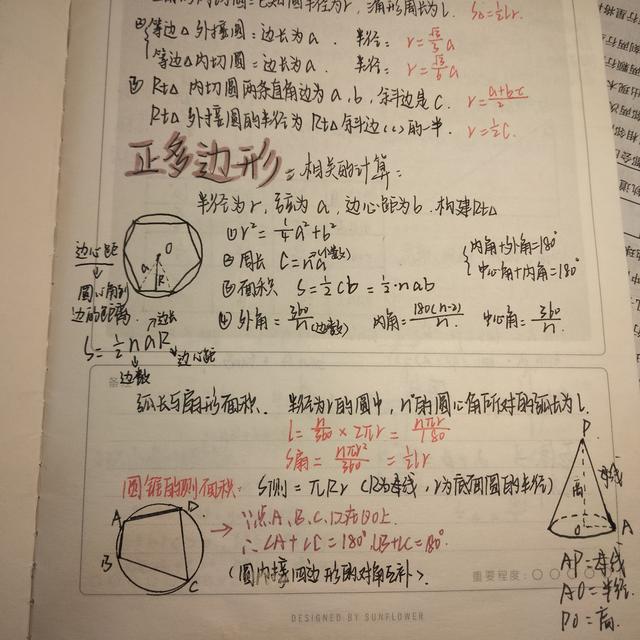 半径为r, 三角形周长为l. S△=½lr.
⑪ 等边△外接圆=边长为a. 半径: r=√3/3 a
等边△内切圆=边长为a. 半径: r=√3/6 a
Rt△ 内切圆两条直角边为a,b, 斜边是c. r=(a+b-c)/2
Rt△外接圆的半径为Rt△斜边(c)的一半. r=½c.
正多边形=相关的计算:
半径为r, 弦为a, 边心距为b. 构建Rt△
① r²=¼a²+b²
② 周长 C=na (个数)
③ 面积 S=½cb=½·nab
④ 外角=360/n (边数) 内角=180(n-2)/n 中心角=360/n
内角+外角=180°
中心角+内角=180°
边心距
圆心角到
边的距离
O
a
R
边长
S=½naR
边心距
边数
备
弧长与扇形面积. 半径为r的圆中, n°的圆心角所对的弧长为l.
l=n/360×2πr=nπr/180
S扇=nπr²/360=½lr
圆锥的侧面积: S侧=πRr (R为母线, r为底面圆的半径)
A
D
B
C
→ ∵点A、B、C、D在⊙O上
∴∠A+∠C=180°,∠B+∠C=180°.
(圆内接四边形的对角互补).
P
母线
高
O
A
AP=母线
AO=半径.
PO=高.
重要程度:
DESIGNED BY SUNFLOWER